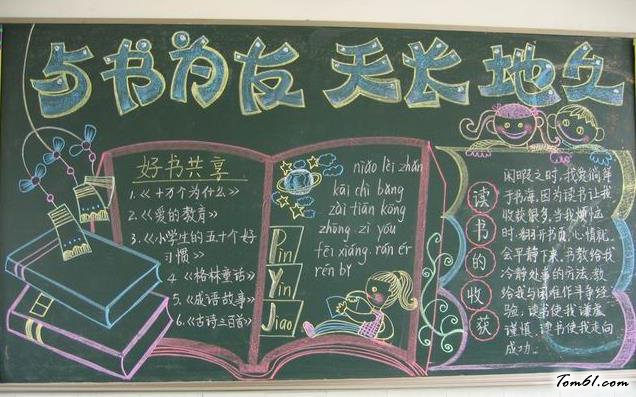 与书为友 天长地久
好书共享
1.《十万个为什么》
2.《爱的教育》
3.《小学生的五十个好
习惯》
4《格林童话》
5.《成语故事》
6.《古诗三百首》
niǎo lèi zhǎn
kāi chì bǎng
zài tiān kōng
zhōng. zì yóu
fēi xiáng. rán ér
rén
Pin
Yin
Jiao
读书的收获
闲暇之时,我爱徜徉
于书海,因为读书让我
收获很多,当我烦恼
时.翻开书页,心情就
会平静下来.书教给我
冷静处事的方法,教
给我与困难作斗争经
验,读书使我谦虚
谨慎.读书使我走向
成功.
Tom61.com